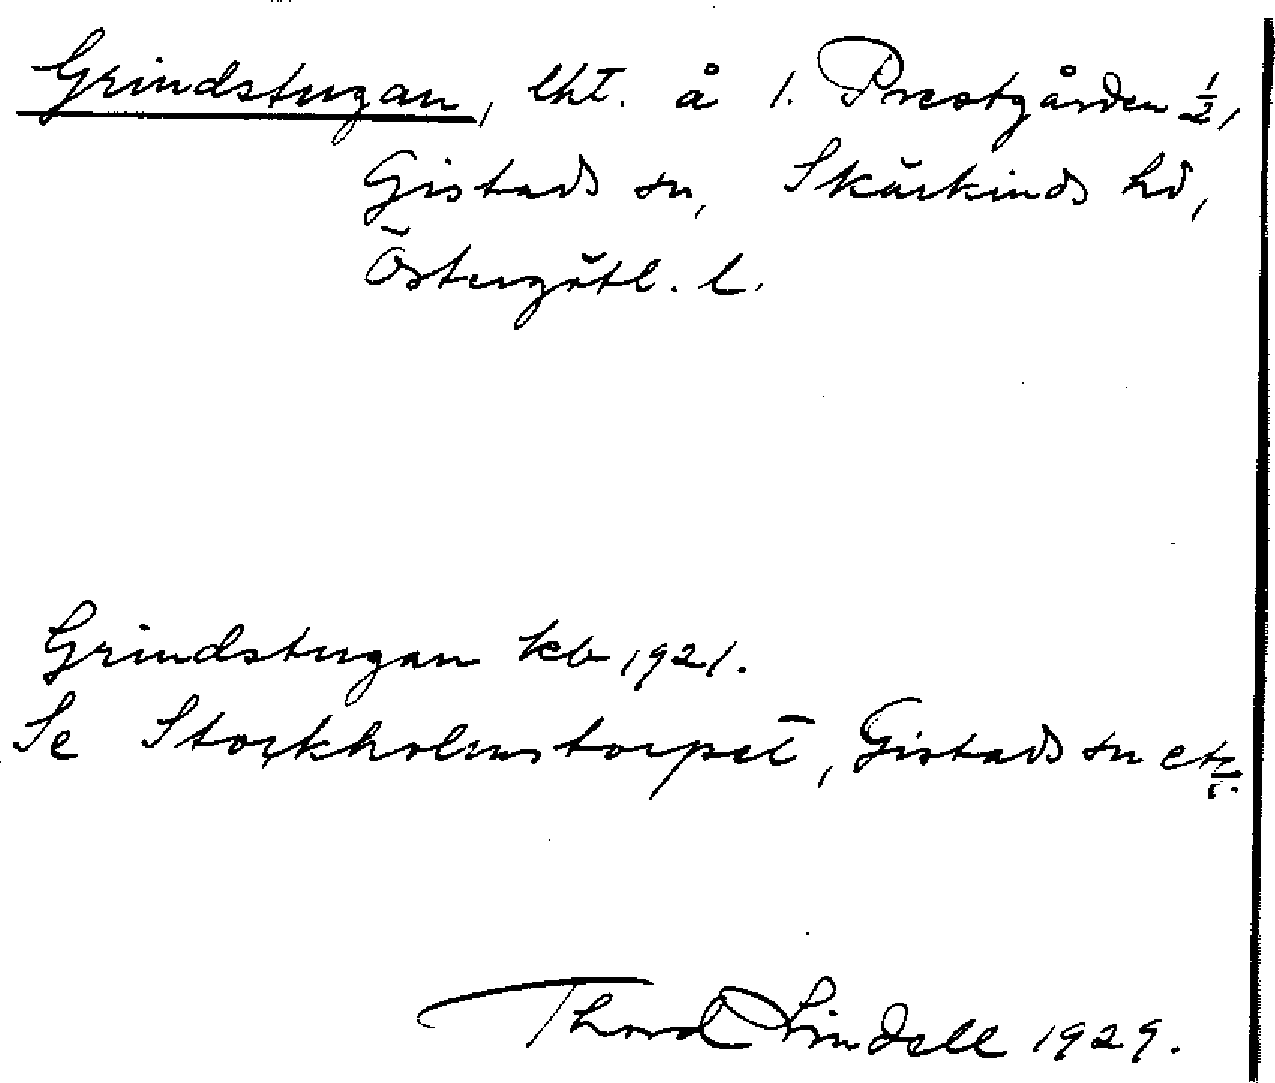 Grindstugan, lht. å 1. Prestgården ½,
Gistads sn, Skärkinds hd,
Östergötl. l.
Grindstugan kb 1921.
Se Stockholmstorpet, Gistads sn etc.
Thord Lindell 1929.